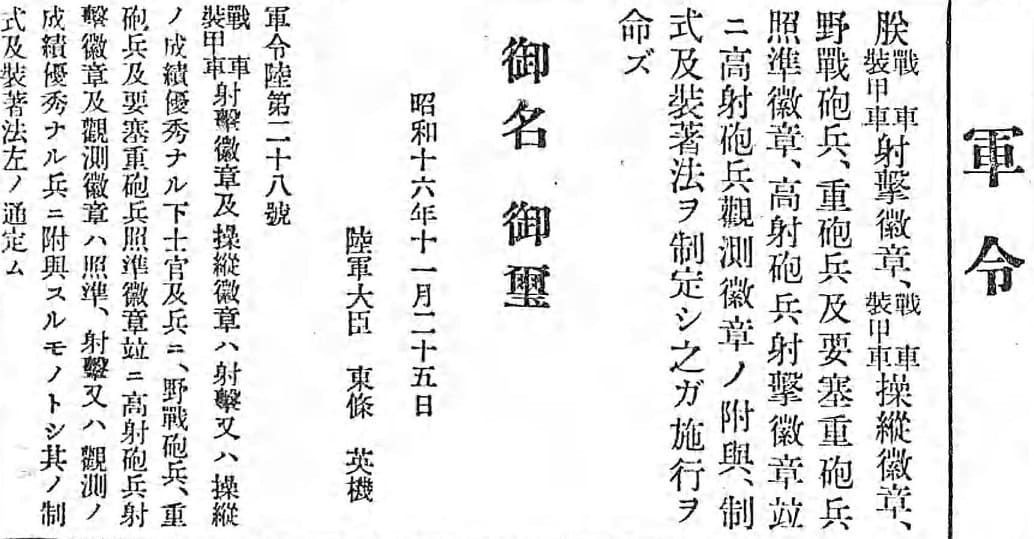 軍令
朕戰車裝甲車射擊徽章、戰車裝甲車操縱徽章、
野戰砲兵、重砲兵及要塞重砲兵
照準徽章、高射砲兵射擊徽章竝
ニ高射砲兵觀測徽章ノ附與、制
式及裝著法ヲ制定シ之ガ施行ヲ
命ズ
御名御璽
昭和十六年十一月二十五日
陸軍大臣 東條 英機
軍令陸第二十八號
戰車裝甲車射擊徽章及操縱徽章ハ射擊又ハ操縱
ノ成績優秀ナル下士官及兵ニ、野戰砲兵、重
砲兵及要塞重砲兵照準徽章竝ニ高射砲兵射
擊徽章及觀測徽章ハ照準、射擊又ハ觀測ノ
成績優秀ナル兵ニ附與スルモノトシ其ノ制
式及裝著法左ノ通定ム